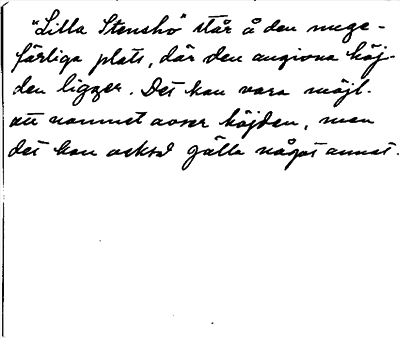 "Lilla Stensho" står å den unge-
färliga plats, där den angivna höj-
den ligger. Det kan vara möjl.
att namnet avser höjden, men
det kan också gälla något annat.